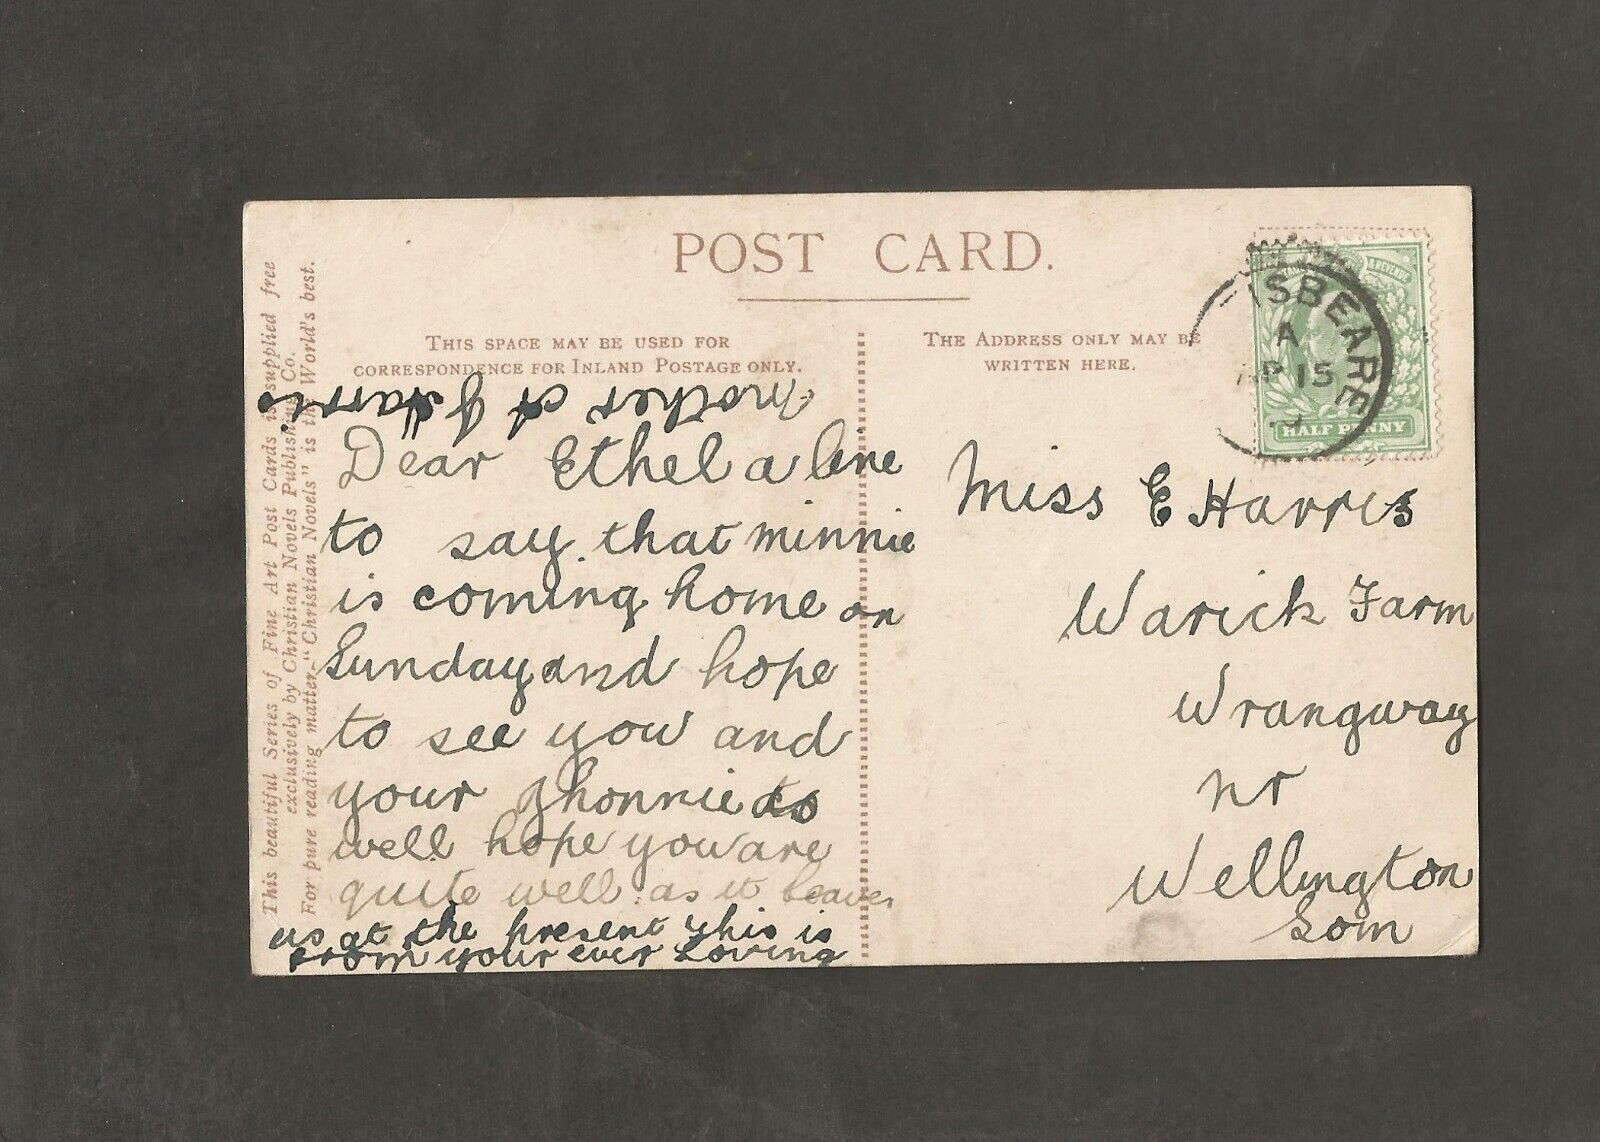 POST CARD.
THIS SPACE MAY BE USED FOR
CORRESPONDENCE FOR INLAND POSTAGE ONLY.
THE ADDRESS ONLY MAY BE
WRITTEN HERE.
This beautiful Series of Fine Art Post Cards is supplied free
exclusively by Christian Novels Publishing Co.
For pure reading matter "Christian Novels" is the World's best.
Dear Ethel a line
to say that minnie
is coming home on
Sunday and hope
to see you and
your Jhonnie
well hope you are
quite well as it leaves
us at the present this is
from your ever Loving
mother A J Harris
Miss E Harris
Warick Farm
Wrangway
nr
Wellington
Som
SBEARE
A
AP 15
& REVENUE
HALF PENNY